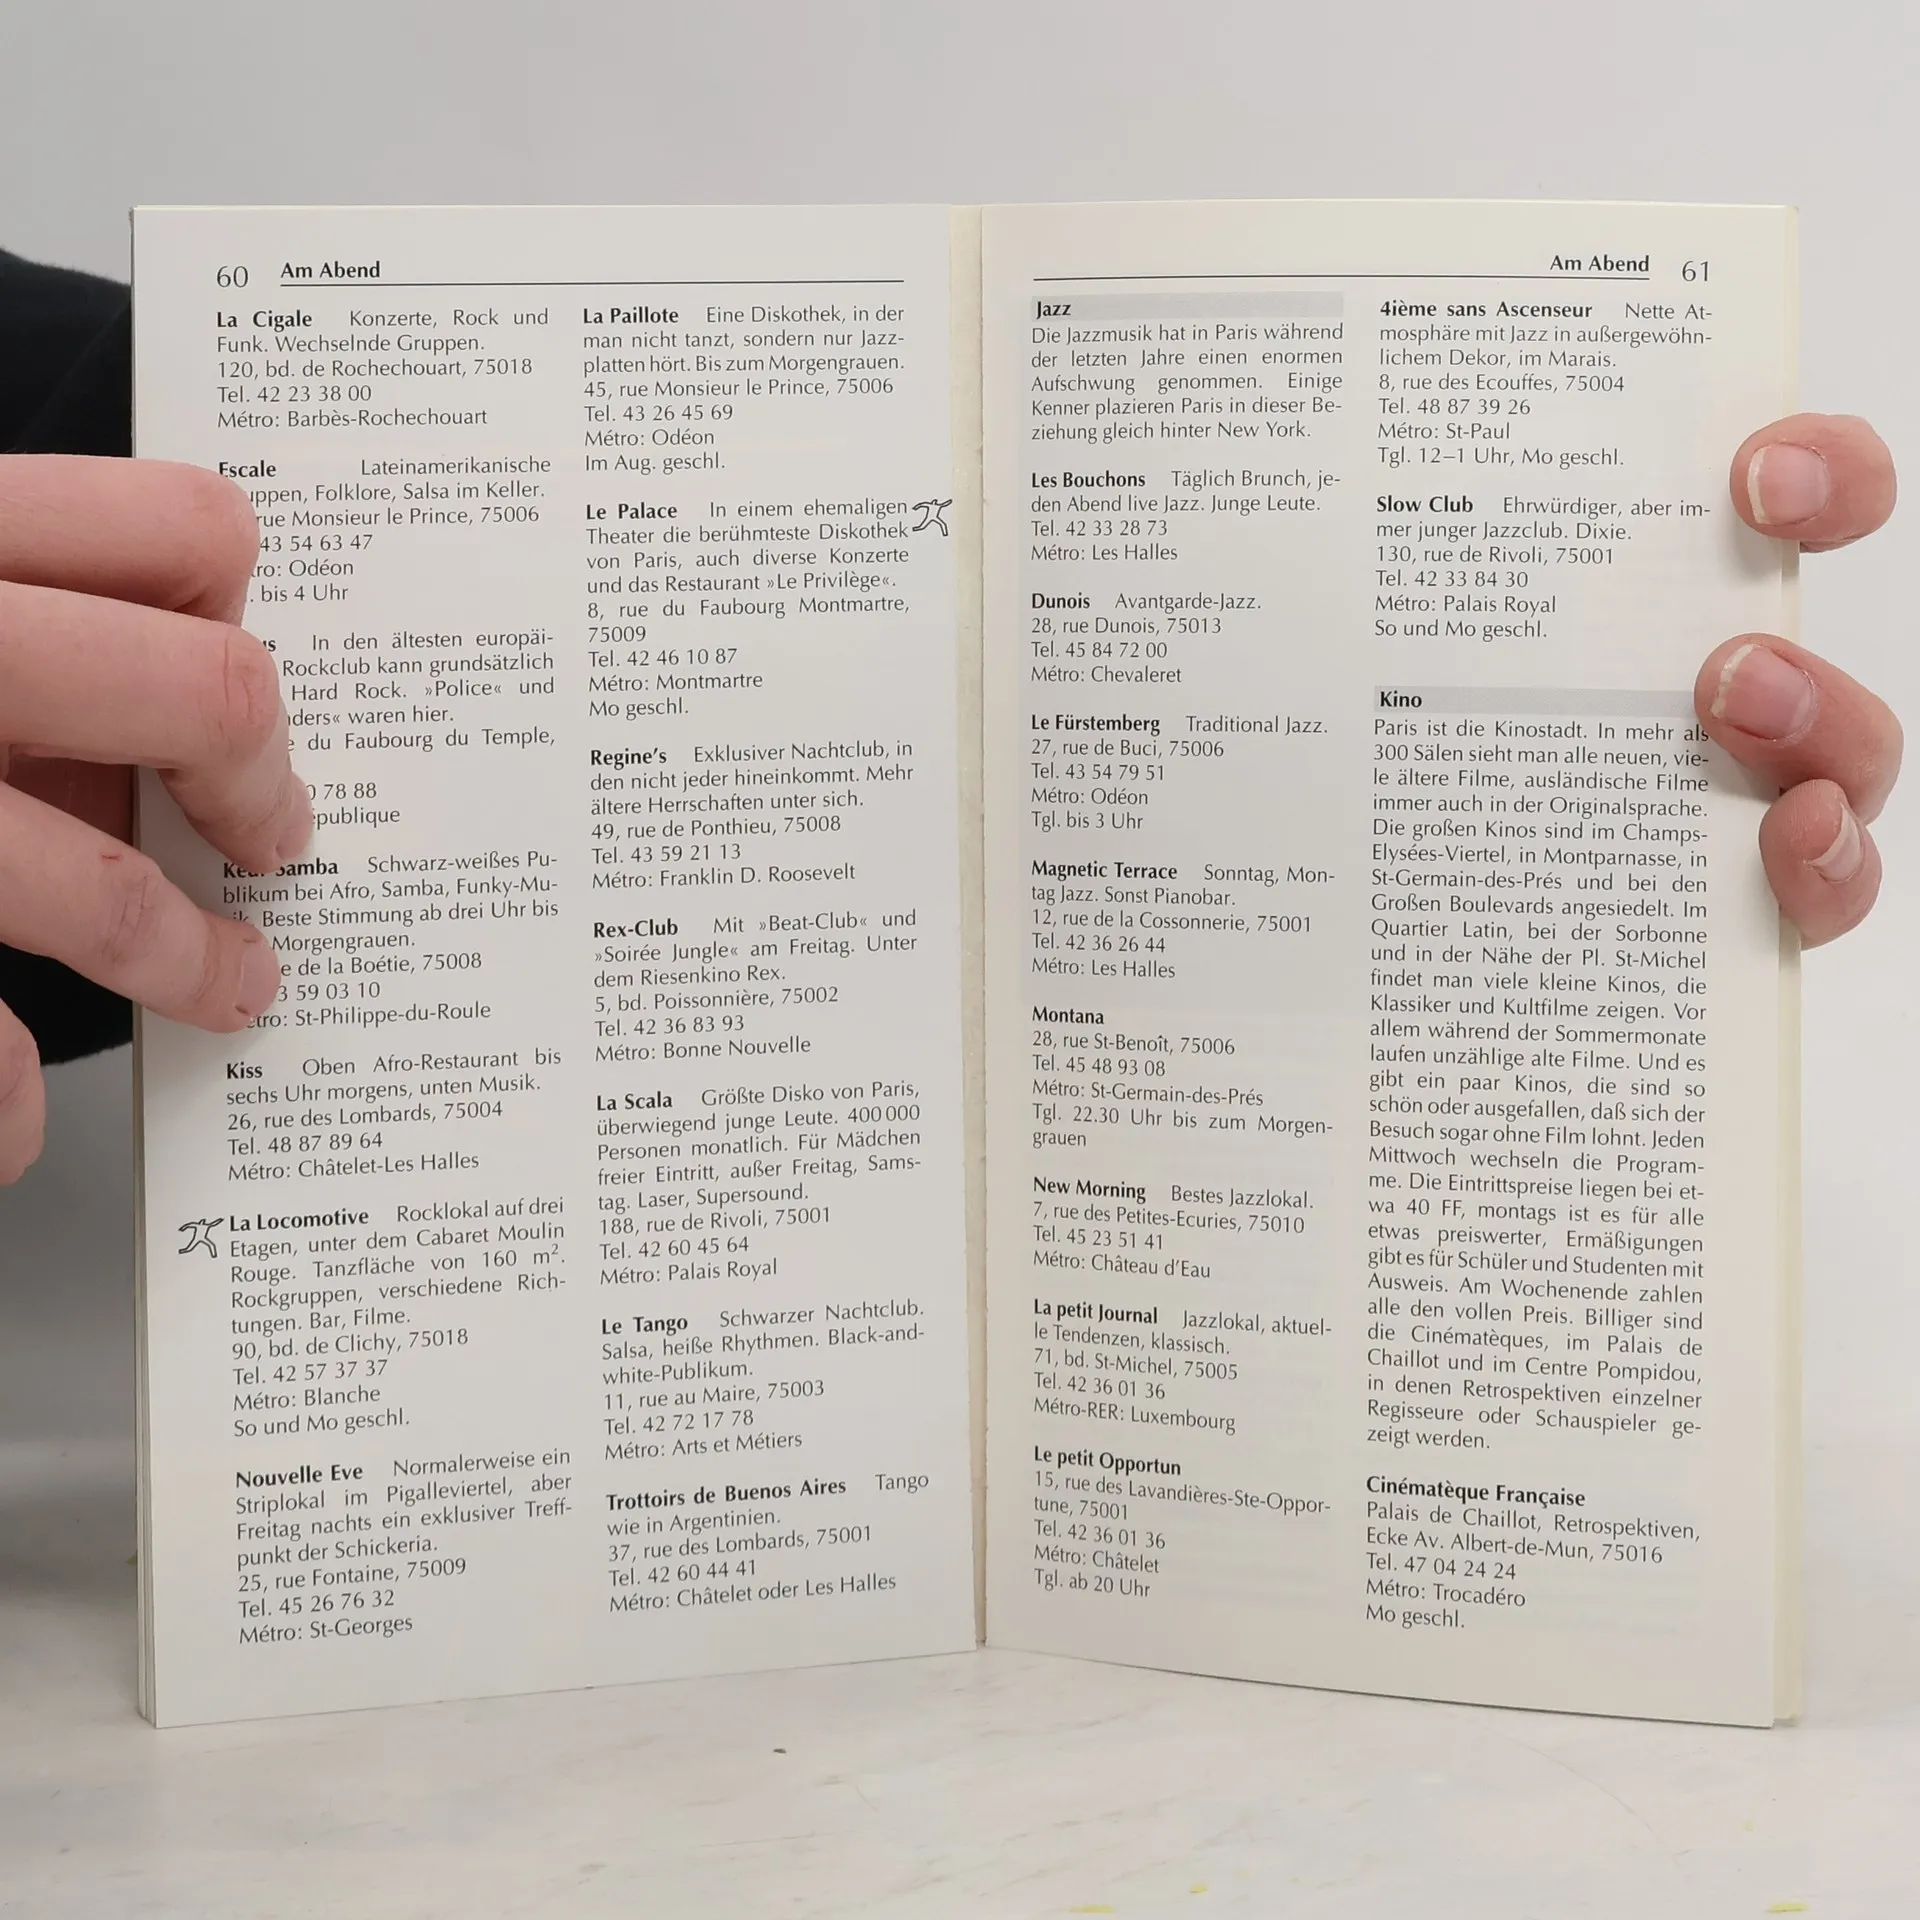 60 Am Abend
La Cigale Konzerte, Rock und
Funk. Wechselnde Gruppen.
120, bd. de Rochechouart, 75018
Tel. 42 23 38 00
Métro: Barbès-Rochechouart
Escale Lateinamerikanische
uppen, Folklore, Salsa im Keller.
rue Monsieur le Prince, 75006
43 54 63 47
tro: Odéon
. bis 4 Uhr
In den ältesten europäi-
Rockclub kann grundsätzlich
Hard Rock. »Police« und
nders« waren hier.
du Faubourg du Temple,
0 78 88
épublique
Samba Schwarz-weißes Pu-
blikum bei Afro, Samba, Funky-Mu-
ik. Beste Stimmung ab drei Uhr bis
Morgengrauen.
e de la Boétie, 75008
3 59 03 10
etro: St-Philippe-du-Roule
Kiss Oben Afro-Restaurant bis
sechs Uhr morgens, unten Musik.
26, rue des Lombards, 75004
Tel. 48 87 89 64
Métro: Châtelet-Les Halles
La Locomotive Rocklokal auf drei
Etagen, unter dem Cabaret Moulin
Rouge. Tanzfläche von 160 m².
Rockgruppen, verschiedene Rich-
tungen. Bar, Filme.
90, bd. de Clichy, 75018
Tel. 42 57 37 37
Métro: Blanche
So und Mo geschl.
Nouvelle Eve Normalerweise ein
Striplokal im Pigalleviertel, aber
Freitag nachts ein exklusiver Treff-
punkt der Schickeria.
25, rue Fontaine, 75009
Tel. 45 26 76 32
Métro: St-Georges
La Paillote Eine Diskothek, in der
man nicht tanzt, sondern nur Jazz-
platten hört. Bis zum Morgengrauen.
45, rue Monsieur le Prince, 75006
Tel. 43 26 45 69
Métro: Odéon
Im Aug. geschl.
Le Palace In einem ehemaligen
Theater die berühmteste Diskothek
von Paris, auch diverse Konzerte
und das Restaurant »Le Privilège«.
8, rue du Faubourg Montmartre,
75009
Tel. 42 46 10 87
Métro: Montmartre
Mo geschl.
Regine's Exklusiver Nachtclub, in
den nicht jeder hineinkommt. Mehr
ältere Herrschaften unter sich.
49, rue de Ponthieu, 75008
Tel. 43 59 21 13
Métro: Franklin D. Roosevelt
Rex-Club Mit »Beat-Club« und
»Soirée Jungle« am Freitag. Unter
dem Riesenkino Rex.
5, bd. Poissonnière, 75002
Tel. 42 36 83 93
Métro: Bonne Nouvelle
La Scala Größte Disko von Paris,
überwiegend junge Leute. 400 000
Personen monatlich. Für Mädchen
freier Eintritt, außer Freitag, Sams-
tag. Laser, Supersound.
188, rue de Rivoli, 75001
Tel. 42 60 45 64
Métro: Palais Royal
Le Tango Schwarzer Nachtclub.
Salsa, heiße Rhythmen. Black-and-
white-Publikum.
11, rue au Maire, 75003
Tel. 42 72 17 78
Métro: Arts et Métiers
Trottoirs de Buenos Aires Tango
wie in Argentinien.
37, rue des Lombards, 75001
Tel. 42 60 44 41
Métro: Châtelet oder Les Halles
Am Abend 61
Jazz
Die Jazzmusik hat in Paris während
der letzten Jahre einen enormen
Aufschwung genommen. Einige
Kenner plazieren Paris in dieser Be-
ziehung gleich hinter New York.
Les Bouchons Täglich Brunch, je-
den Abend live Jazz. Junge Leute.
Tel. 42 33 28 73
Métro: Les Halles
Dunois Avantgarde-Jazz.
28, rue Dunois, 75013
Tel. 45 84 72 00
Métro: Chevaleret
Le Fürstemberg Traditional Jazz.
27, rue de Buci, 75006
Tel. 43 54 79 51
Métro: Odéon
Tgl. bis 3 Uhr
Magnetic Terrace Sonntag, Mon-
tag Jazz. Sonst Pianobar.
12, rue de la Cossonnerie, 75001
Tel. 42 36 26 44
Métro: Les Halles
Montana
28, rue St-Benoît, 75006
Tel. 45 48 93 08
Métro: St-Germain-des-Prés
Tgl. 22.30 Uhr bis zum Morgen-
grauen
New Morning Bestes Jazzlokal.
7, rue des Petites-Ecuries, 75010
Tel. 45 23 51 41
Métro: Château d'Eau
La petit Journal Jazzlokal, aktuel-
le Tendenzen, klassisch.
71, bd. St-Michel, 75005
Tel. 42 36 01 36
Métro-RER: Luxembourg
Le petit Opportun
15, rue des Lavandières-Ste-Oppor-
tune, 75001
Tel. 42 36 01 36
Métro: Châtelet
Tgl. ab 20 Uhr
4ième sans Ascenseur Nette At-
mosphäre mit Jazz in außergewöhn-
lichem Dekor, im Marais.
8, rue des Ecouffes, 75004
Tel. 48 87 39 26
Métro: St-Paul
Tgl. 12–1 Uhr, Mo geschl.
Slow Club Ehrwürdiger, aber im-
mer junger Jazzclub. Dixie.
130, rue de Rivoli, 75001
Tel. 42 33 84 30
Métro: Palais Royal
So und Mo geschl.
Kino
Paris ist die Kinostadt. In mehr als
300 Sälen sieht man alle neuen, vie-
le ältere Filme, ausländische Filme
immer auch in der Originalsprache.
Die großen Kinos sind im Champs-
Elysées-Viertel, in Montparnasse, in
St-Germain-des-Prés und bei den
Großen Boulevards angesiedelt. Im
Quartier Latin, bei der Sorbonne
und in der Nähe der Pl. St-Michel
findet man viele kleine Kinos, die
Klassiker und Kultfilme zeigen. Vor
allem während der Sommermonate
laufen unzählige alte Filme. Und es
gibt ein paar Kinos, die sind so
schön oder ausgefallen, daß sich der
Besuch sogar ohne Film lohnt. Jeden
Mittwoch wechseln die Program-
me. Die Eintrittspreise liegen bei et-
wa 40 FF, montags ist es für alle
etwas preiswerter, Ermäßigungen
gibt es für Schüler und Studenten mit
Ausweis. Am Wochenende zahlen
alle den vollen Preis. Billiger sind
die Cinématèques, im Palais de
Chaillot und im Centre Pompidou,
in denen Retrospektiven einzelner
Regisseure oder Schauspieler ge-
zeigt werden.
Cinématèque Française
Palais de Chaillot, Retrospektiven,
Ecke Av. Albert-de-Mun, 75016
Tel. 47 04 24 24
Métro: Trocadéro
Mo geschl.